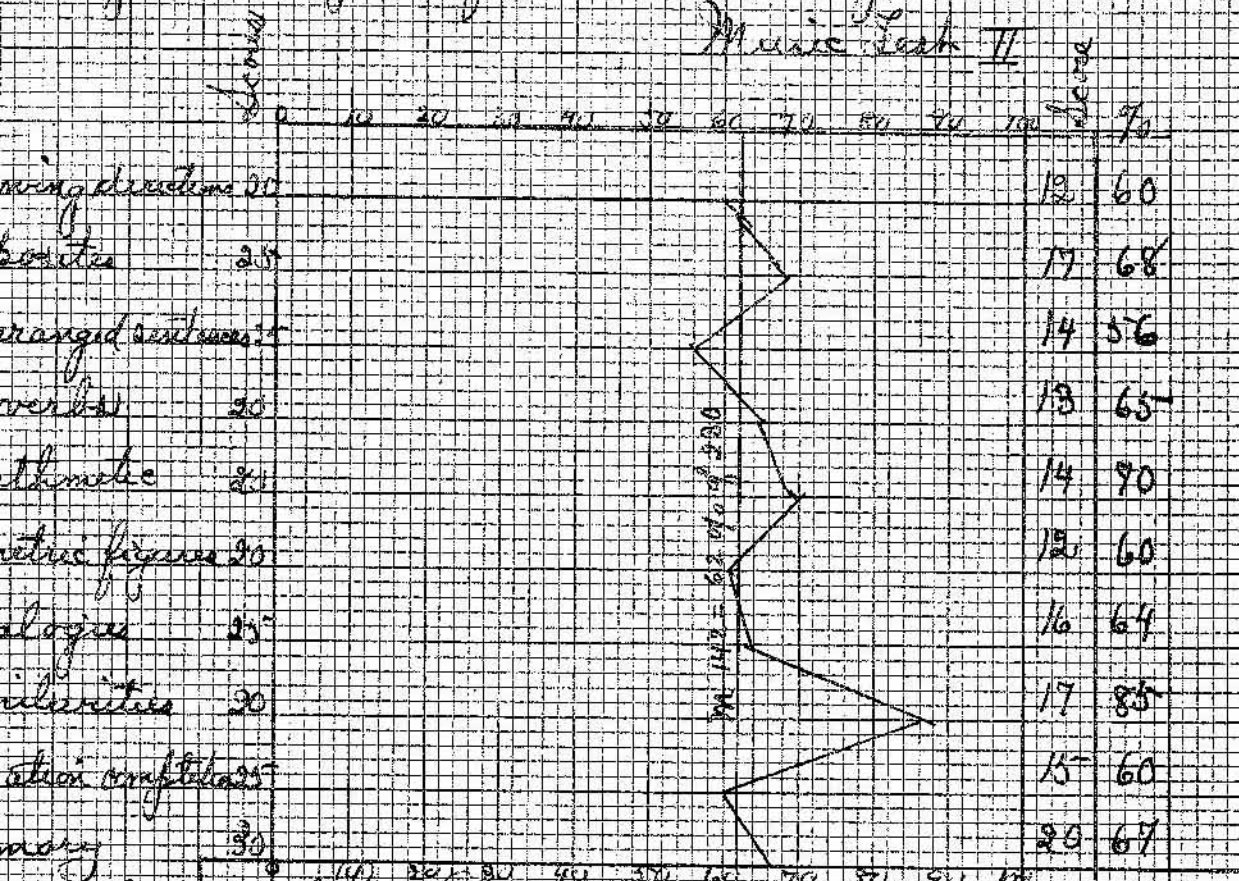 Music Test II
Scores 0 10 20 30 40 50 60 70 80 90 100 Score %
wing directions 20 12 60
posites 25 17 68
ranged sentences 25 14 56
verbs 20 13 65
thmetic 20 14 70
metric figures 20 12 60
alogies 25 16 64
milarities 20 17 85
ation completion 25 15 60
mory 30 20 67
0 10 20 30 40 50 60 70 80 90 100
M 142 = 62 % of 230